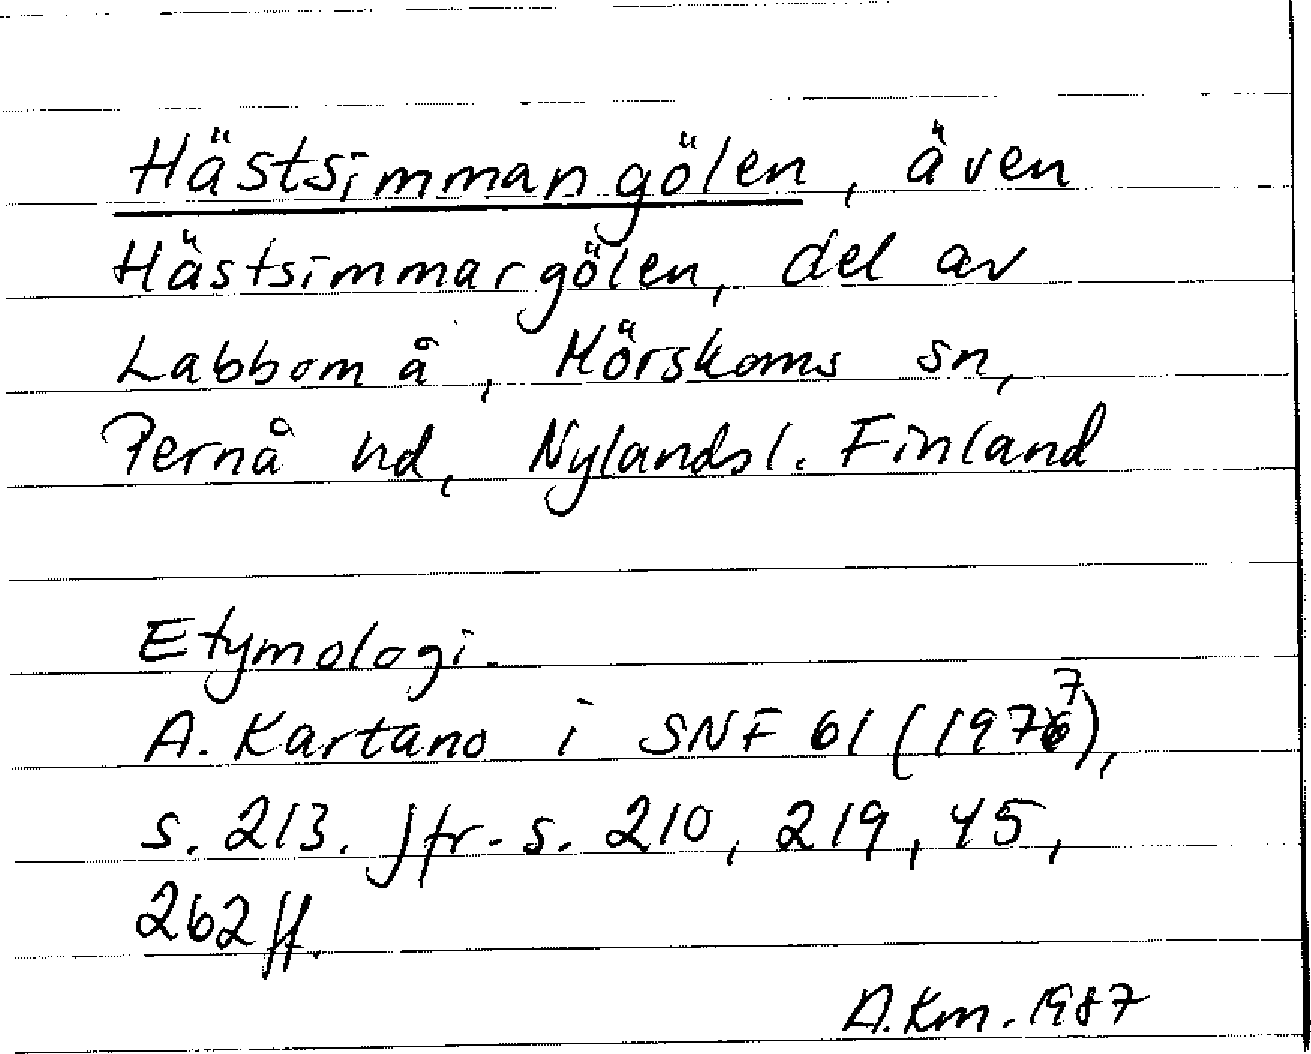 Hästsimmangölen, även
Hästsimmargölen, del av
Labbom å, Mörskoms sn,
Pernå hd, Nylandsl. Finland
Etymologi.
A. Kartano i SNF 61 (1977),
s. 213. Jfr. s. 210, 219, 45,
262 ff.
A.Km. 1987